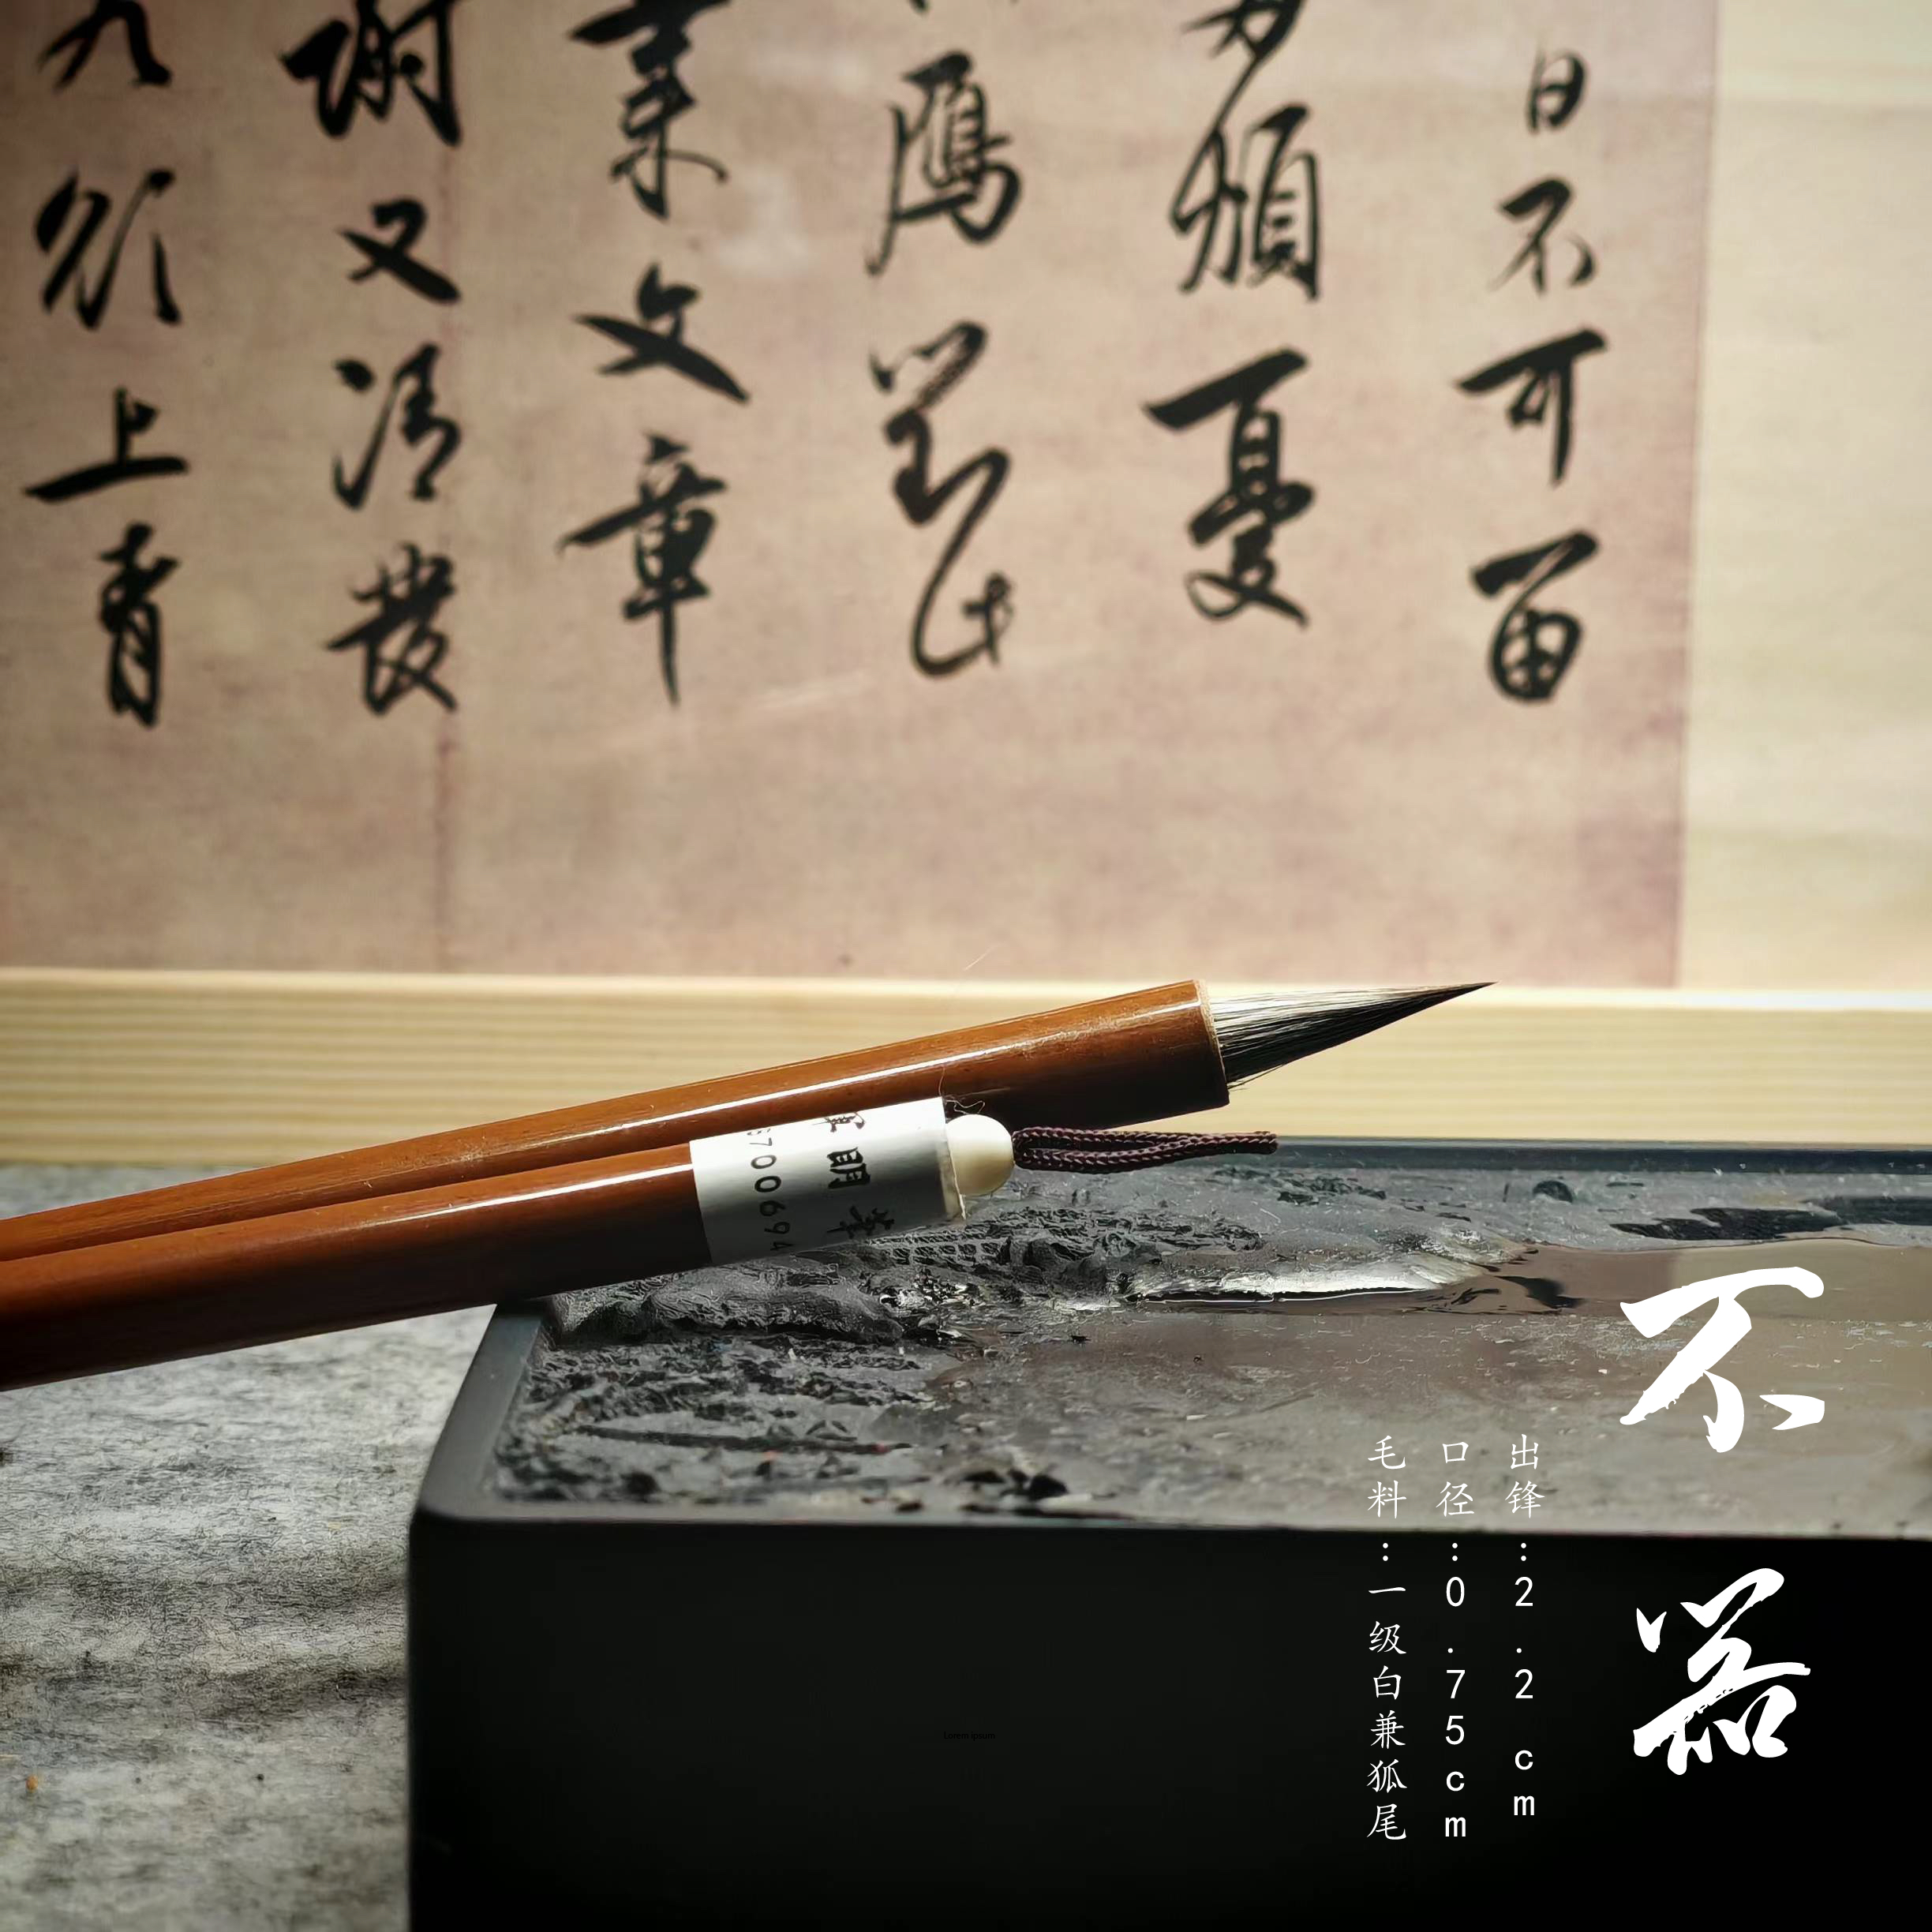 日不可留
多煩憂
鴈對此
文章
謝又清發
欲上青
明筆
700694
不器
出锋:2.2cm
口径:0.75cm
毛料:一级白兼狐尾
Lorem ipsum